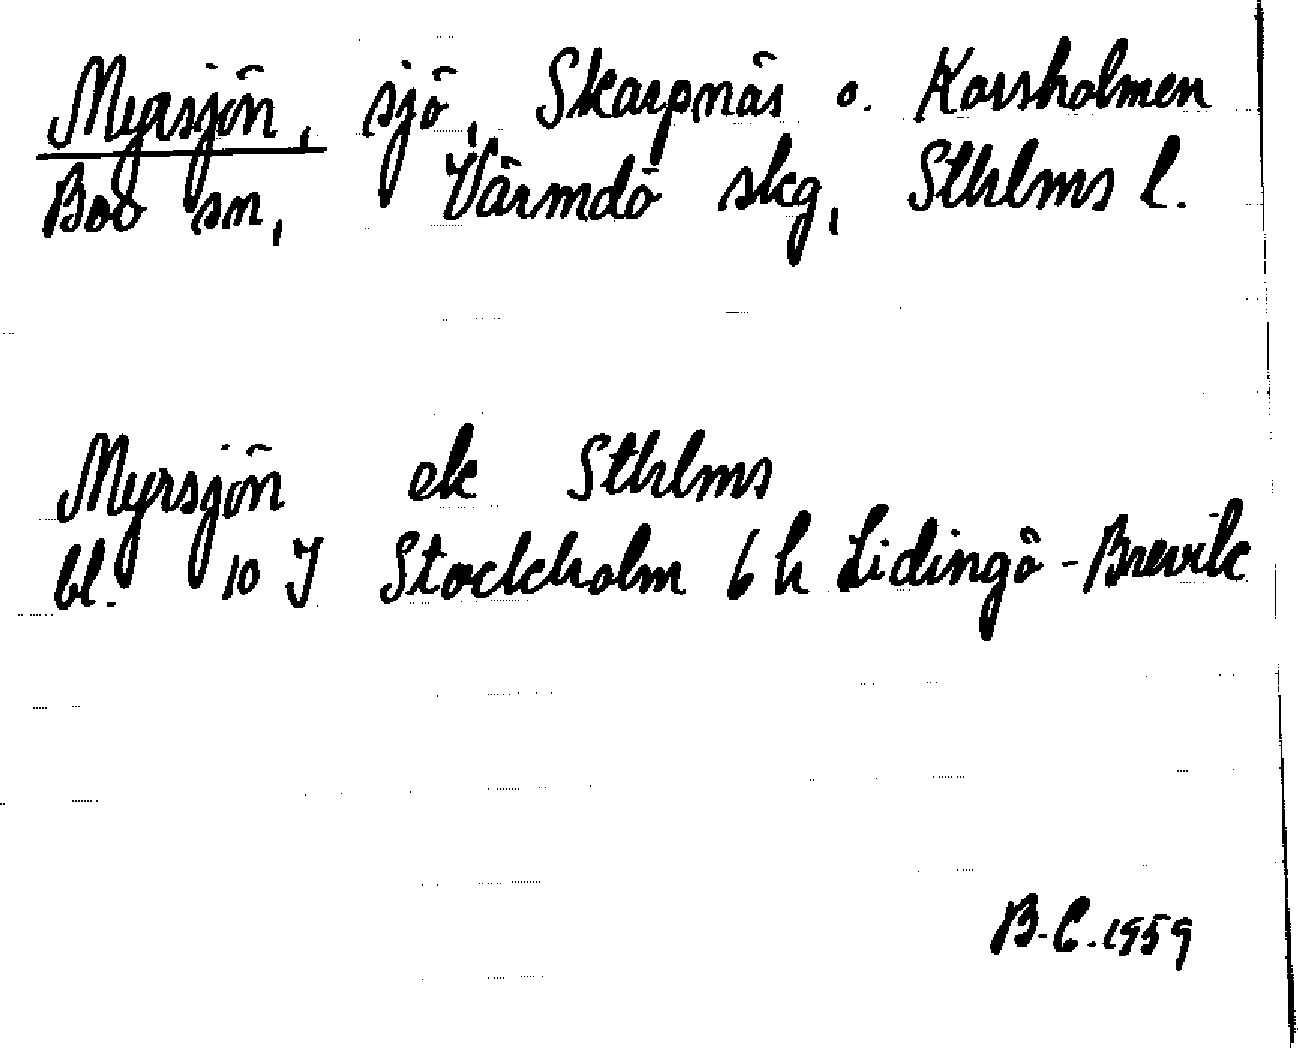 Myrsjön, sjö, Skarpnäs o. Korsholmen
Boo sn, Värmdö skg, Sthlms l.
Myrsjön ek Sthlms
bl. 10 J Stockholm 6 h Lidingö-Brevik
B.C. 1959